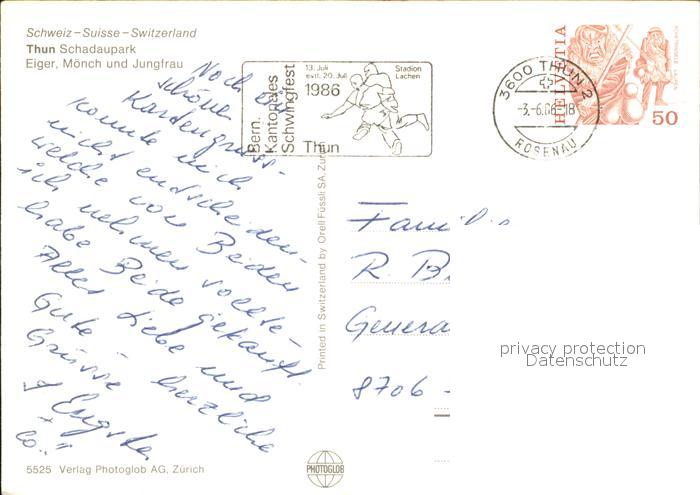 Schweiz – Suisse – Switzerland
Thun Schadaupark
Eiger, Mönch und Jungfrau
Noch
schöne
Kartengruss
konnte mich
nicht entscheiden
welche von Beiden
ich nehmen sollte
habe Beide gekauft
Alles Liebe und
Gute herzliche
Grüsse
Bern.
Kantonales
Schwingfest
13. Juli
evtl. 20. Juli
1986
Stadion
Lachen
Thun
3600 THUN 2
-3.-6.86-18
ROSENAU
HELVETIA
50
Printed in Switzerland by Orell Füssli SA, Zürich
Famil
R. B.
Genera
8706 -
privacy protection
Datenschutz
5525 Verlag Photoglob AG, Zürich
PHOTOGLOB